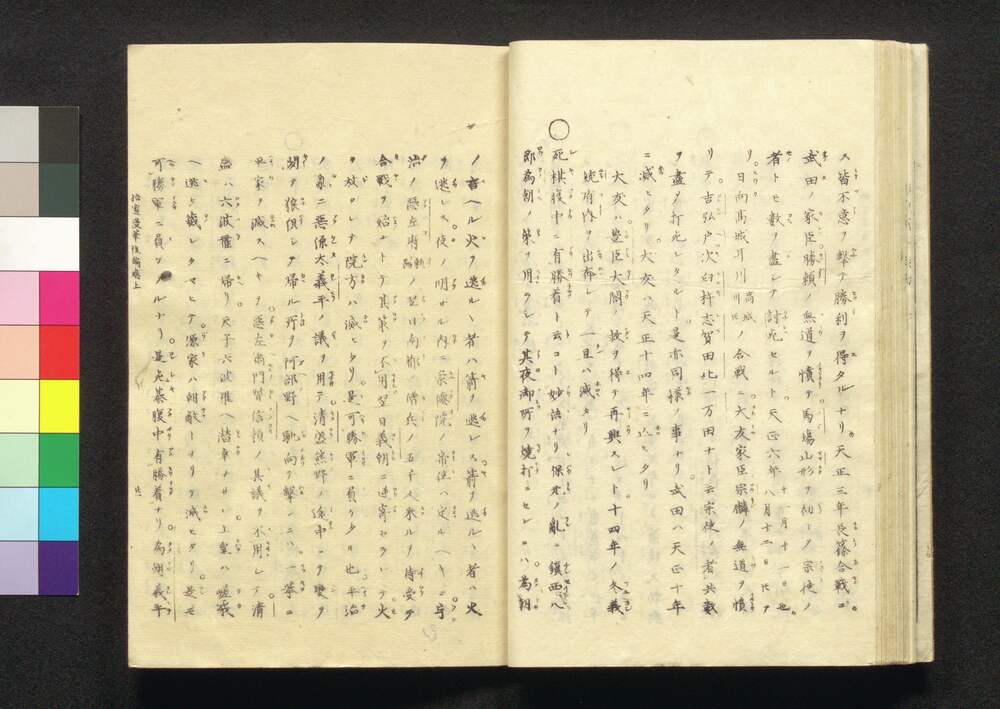 ス皆不意ヲ撃テ勝利ヲ得タルナリ天正三年長篠合戦ニ
武田ノ家臣勝頼ノ無道ヲ憤テ馬場山形ヲ初メ宗徒ノ
者トモ数ヲ盡シテ討死セルト天正六年十一月十一日也八月十二日ヒヲ
リ日向高城耳川高城川也ノ合戦ニ大友家臣宗麟ノ無道ヲ憤
リテ吉弘戸次臼杵志賀田北一万田ナト云宗徒ノ者共數
ヲ盡テ打死シタルト是亦同様ノ事ナリ武田ハ天正十年
ニ滅ヒタリ大友ハ天正十四年ニ亡ヒタリ
大友ハ豊臣大閤ノ救ヲ得テ再興スレト十四年ノ冬義
統府内ヲ出奔シテ一旦ハ滅タリ
○死棋腹中ニ有勝着ト云コト妙法ナリ保元ノ亂ニ鎮西八
郎為朝ノ策ヲ用ヲシテ其夜御所ヲ焼打ニセレハ為朝
ノ言ヘル火ヲ逃ルヽ者ハ箭ヲ逃レス箭ヲ逃ルヽ者ハ火
ヲ逃レス夜ノ明サル内ニ崇徳院ノ帝位ハ定ルヘキニ宇
治ノ悪左府頼長ノ翌日南都ノ僧兵ノ五千人来ルヲ待受テ
合戦ヲ始ントテ其策ヲ不用翌日義朝ニ逆寄セラレテ火
ヲ放ワレテ院方ハ滅ヒタリ是可勝軍ニ負ケタル也平治
ノ亂ニ悪源太義平ノ議ヲ用テ清盛熊野ノ途中ニテ變ヲ
聞ヲ狼狽シテ帰ル所ヲ阿部野ヘ馳向ヲ撃ンニハ一挙ニ
平家ヲ滅スヘキヲ悪右衛門督信頼ノ其議ヲ不用シテ清
盛ハ六波羅ニ帰リ天子六波羅ヘ潜幸ナサレ上皇ハ仁和
ヘ逃ヒ蔵レタマヒテ源家ハ朝敵トナリテ滅ヒタリ是モ
可勝軍ニ負ケタルナリ是死棋腹中有勝着ナリ為朝義平